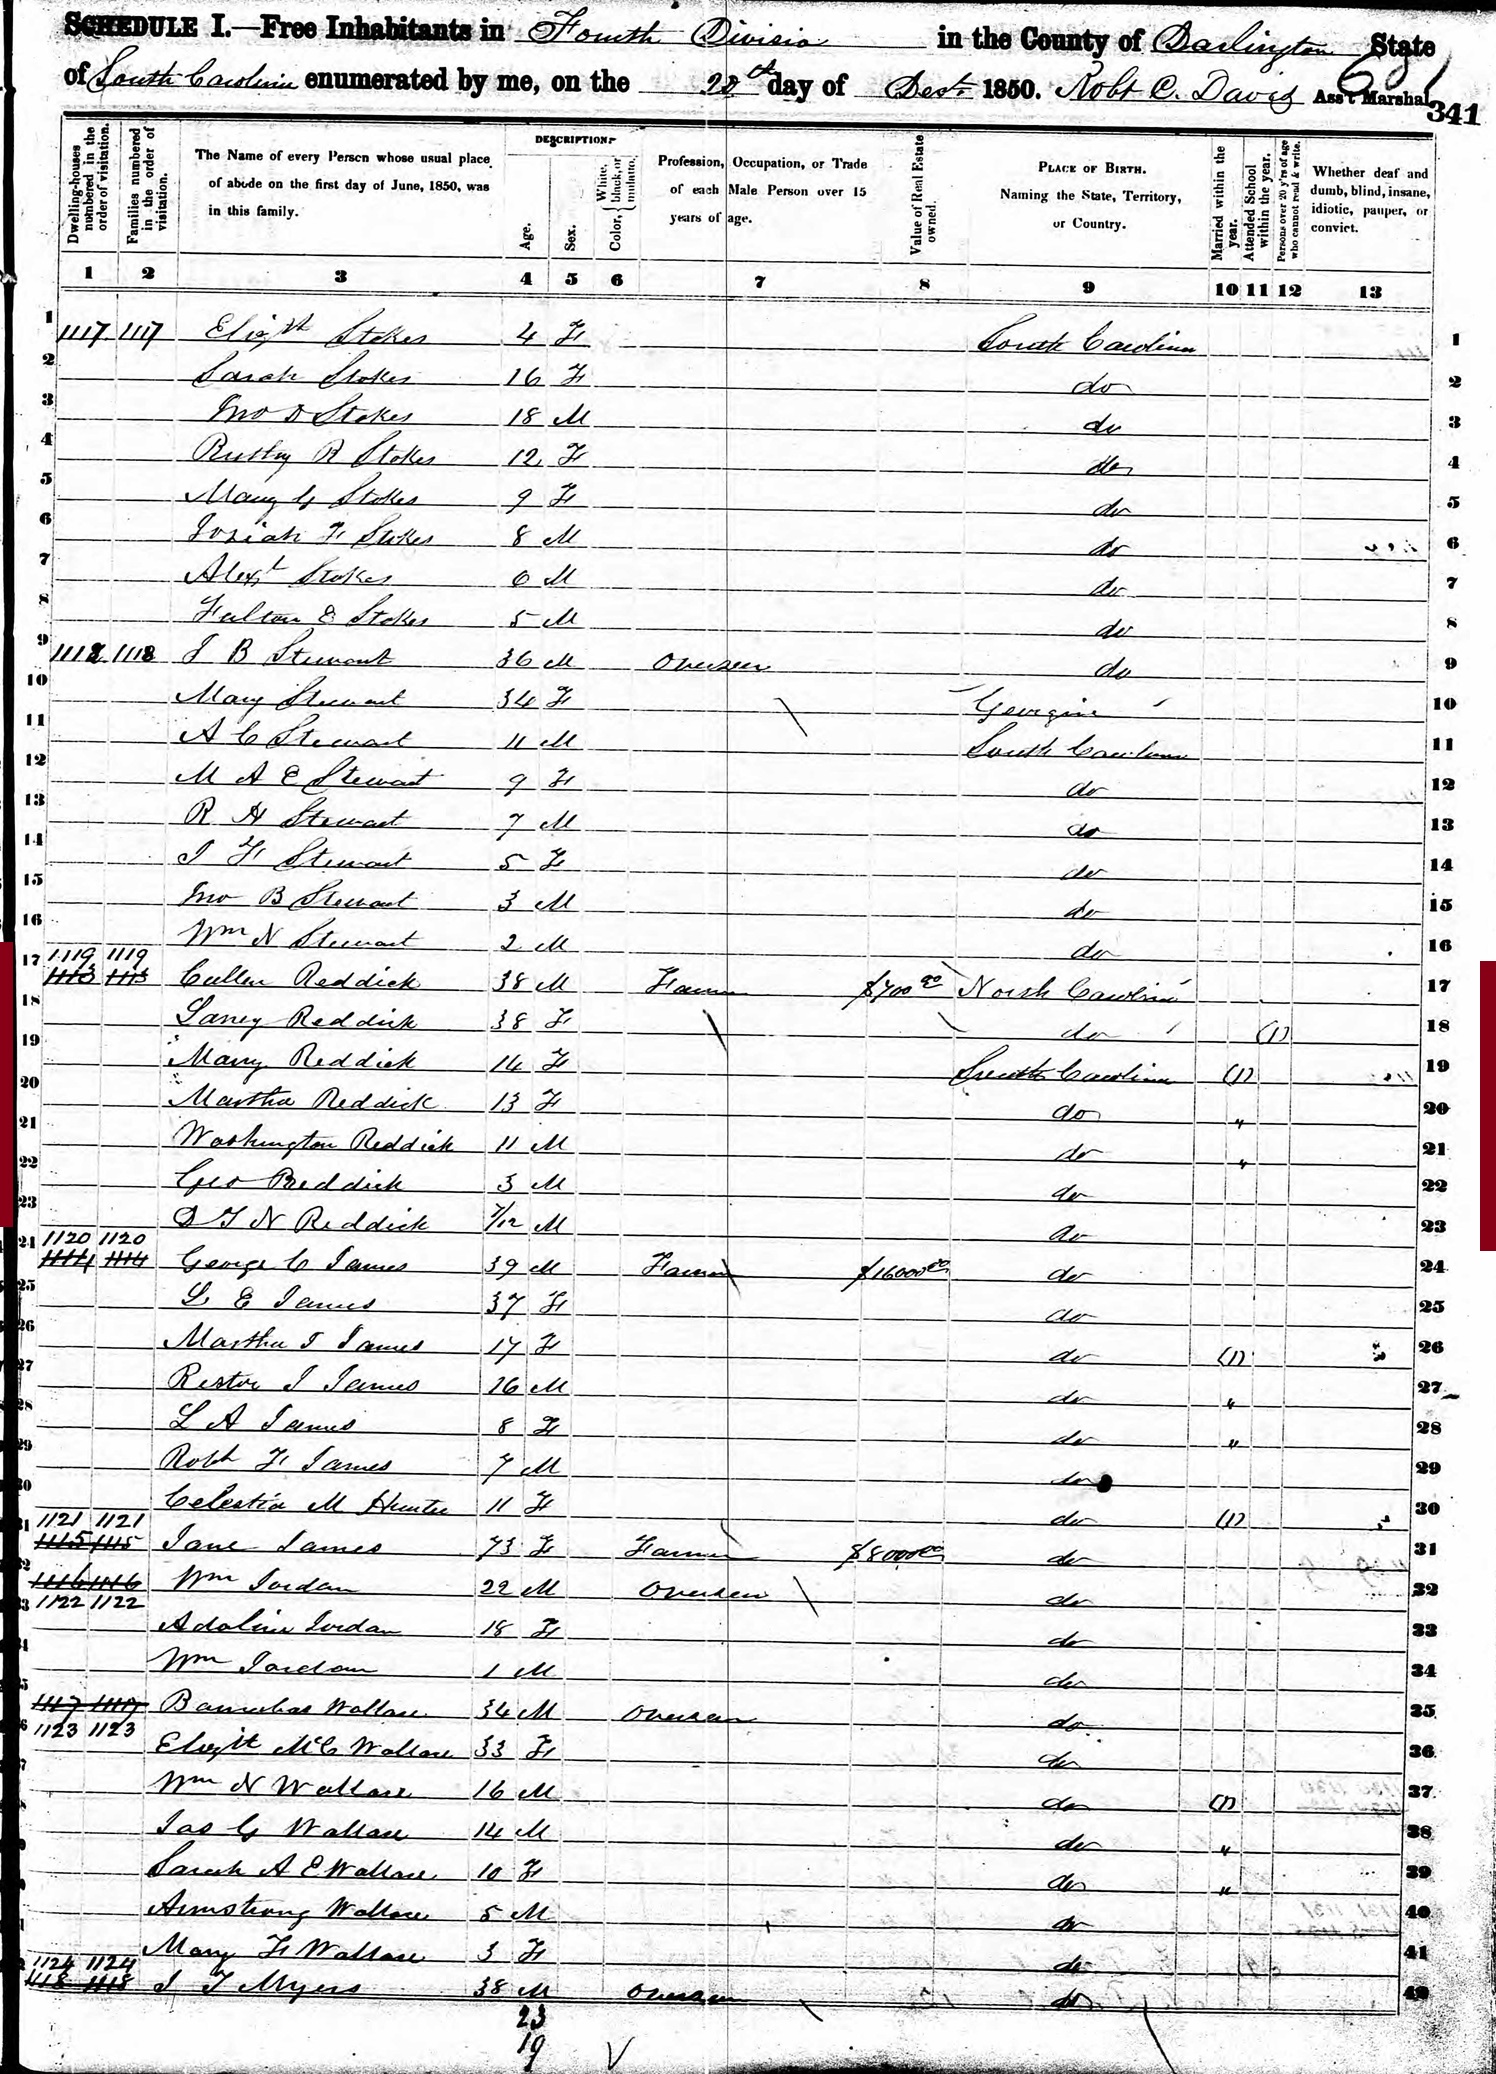 SCHEDULE I.—Free Inhabitants in Fourth Divisio in the County of Darlington State
of South Carolina enumerated by me, on the 28th day of Sept. 1850. Robt C. David Ass't Marshal.
341
Dwelling-houses numbered in the order of visitation.
Families numbered in the order of visitation.
The Name of every Person whose usual place of abode on the first day of June, 1850, was in this family.
DESCRIPTION.
Age.
Sex.
Color, { White, black, or mulatto.
Profession, Occupation, or Trade of each Male Person over 15 years of age.
Value of Real Estate owned.
PLACE OF BIRTH. Naming the State, Territory, or Country.
Married within the year.
Attended School within the year.
Persons over 20 y'rs of age who cannot read & write.
Whether deaf and dumb, blind, insane, idiotic, pauper, or convict.
1 2 3 4 5 6 7 8 9 10 11 12 13
1 1117 1117 Elizth Stokes 4 F South Carolina 1
2 Sarah Stokes 16 F do 2
3 Jno D Stokes 18 M do 3
4 R Stokes 12 F do 4
5 Mary G Stokes 9 F do 5
6 Josiah F Stokes 8 M do 6
7 Stokes 6 M do 7
8 Fulton E Stokes 5 M do 8
9 1118 1118 J B Stewart 36 M Overseer do 9
10 Mary Stewart 34 F Georgia 10
11 A C Stewart 11 M South Carolina 11
12 M A E Stewart 9 F do 12
13 R H Stewart 7 M do 13
14 J F Stewart 5 F do 14
15 Jno B Stewart 3 M do 15
16 Wm N Stewart 2 M do 16
1119 1119
17 1113 1113 Cullen Reddick 38 M Farmer $700 00 North Carolina 17
18 Laney Reddick 38 F do (1) 18
19 Mary Reddick 14 F South Carolina (1) 19
20 Martha Reddick 13 F do " 20
21 Washington Reddick 11 M do " 21
22 Geo Reddick 3 M do 22
23 D T N Reddick 7/12 M do 23
1120 1120
24 1114 1114 George C James 39 M Farmer $16000 00 do 24
25 L E James 37 F do 25
26 Martha J James 17 F do (1) 26
27 Restor J James 16 M do " 27
28 L A James 8 F do " 28
29 Robt F James 7 M do 29
30 Celestia M Hunter 11 F do (1) 30
1121 1121
31 1115 1115 Jane James 73 F Farmer $8000 00 do 31
32 1116 1116 Wm Jordan 22 M Overseer do 32
1122 1122
33 Adaline Jordan 18 F do 33
34 Wm Jordan 1 M do 34
35 1117 1117 Barnabas Wallace 34 M Overseer do 35
1123 1123
36 Elizth McC Wallace 33 F do 36
Wm N Wallace 16 M do (1) 37
Jas G Wallace 14 M do " 38
Sarah A E Wallace 10 F do " 39
Armstrong Wallace 5 M do 40
Mary F Wallace 3 F do 41
1124 1124
1118 1118 J T Myers 38 M Overseer do 42
23
19